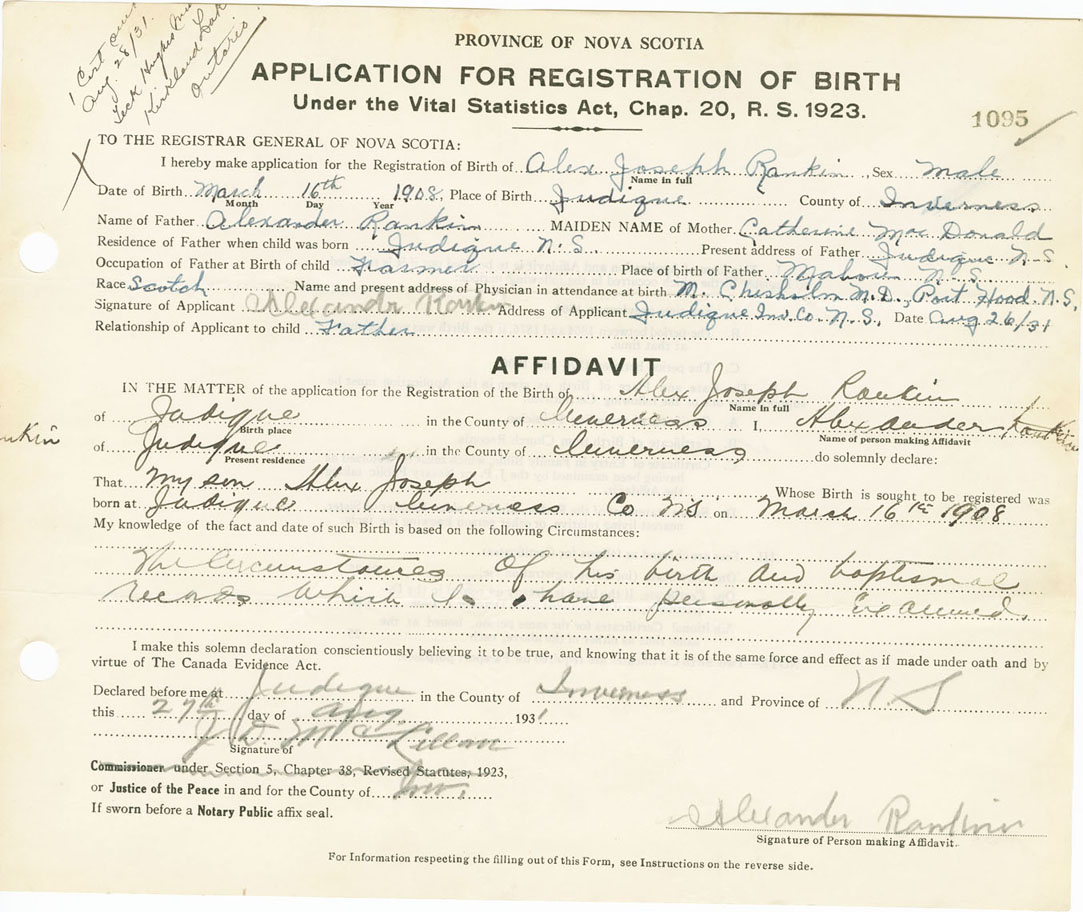 1 Cert
Aug. 28/31.
Teck Hughes
Kirkland Lake
Ontario
PROVINCE OF NOVA SCOTIA
APPLICATION FOR REGISTRATION OF BIRTH
Under the Vital Statistics Act, Chap. 20, R. S. 1923.
1095
TO THE REGISTRAR GENERAL OF NOVA SCOTIA:
I hereby make application for the Registration of Birth of Alex Joseph Rankin, Sex Male
Name in full
Date of Birth March 16th 1908, Place of Birth Judique County of Inverness
Month Day Year
Name of Father Alexander Rankin MAIDEN NAME of Mother Catherine Mac Donald
Residence of Father when child was born Judique N.S. Present address of Father Judique N.S.
Occupation of Father at Birth of child Farmer Place of birth of Father Mabou N.S.
Race Scotch Name and present address of Physician in attendance at birth M. Chisholm M.D., Port Hood N.S.
Signature of Applicant Alexander Rankin Address of Applicant Judique Inv. Co. N.S. Date Aug 26/31
Relationship of Applicant to child Father
AFFIDAVIT
IN THE MATTER of the application for the Registration of the Birth of Alex Joseph Rankin
Name in full
of Judique in the County of Inverness I, Alexander Rankin
Birth place Name of person making Affidavit
of Judique in the County of Inverness do solemnly declare:
Present residence
That My son Alex Joseph Whose Birth is sought to be registered was
born at Judique Inverness Co NS on March 16th 1908
My knowledge of the fact and date of such Birth is based on the following Circumstances:
The Circumstances of his birth and baptismal
records which I have personally examined.
I make this solemn declaration conscientiously believing it to be true, and knowing that it is of the same force and effect as if made under oath and by
virtue of The Canada Evidence Act.
Declared before me at Judique in the County of Inverness and Province of N S
this 27th day of Aug 1931
J D McLellan
Signature of
Commissioner under Section 5, Chapter 38, Revised Statutes, 1923,
or Justice of the Peace in and for the County of Inv.
If sworn before a Notary Public affix seal.
Alexander Rankin
Signature of Person making Affidavit.
For Information respecting the filling out of this Form, see Instructions on the reverse side.